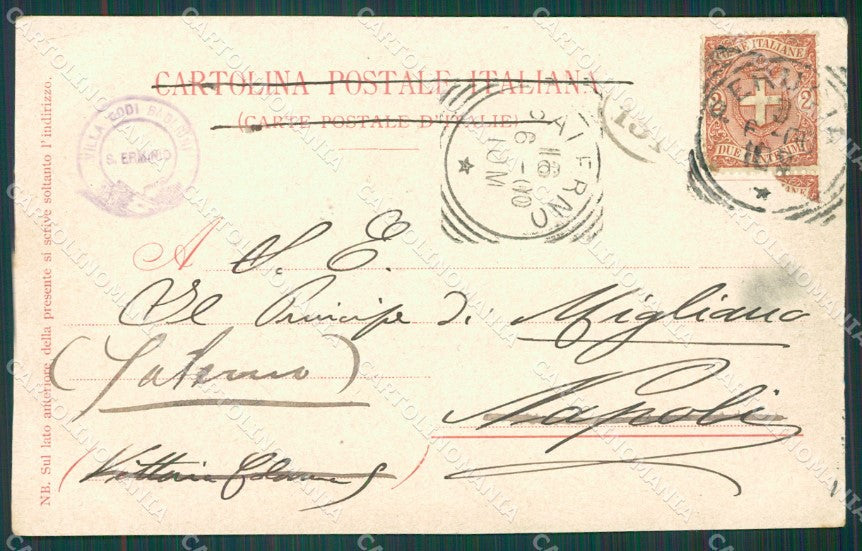 CARTOLINA POSTALE ITALIANA
(CARTE POSTALE D'ITALIE)
VILLA
S. ERMINIO
SALERNO
6 - 00
10 M
131
POSTE ITALIANE
2 2
DUE CENTESIMI
A S. E.
Il Principe di Migliano
(Salerno)
Napoli
Vittoria Colonna
NB. Sul lato anteriore della presente si scrive soltanto l'indirizzo.
CARTOLINOMANIA